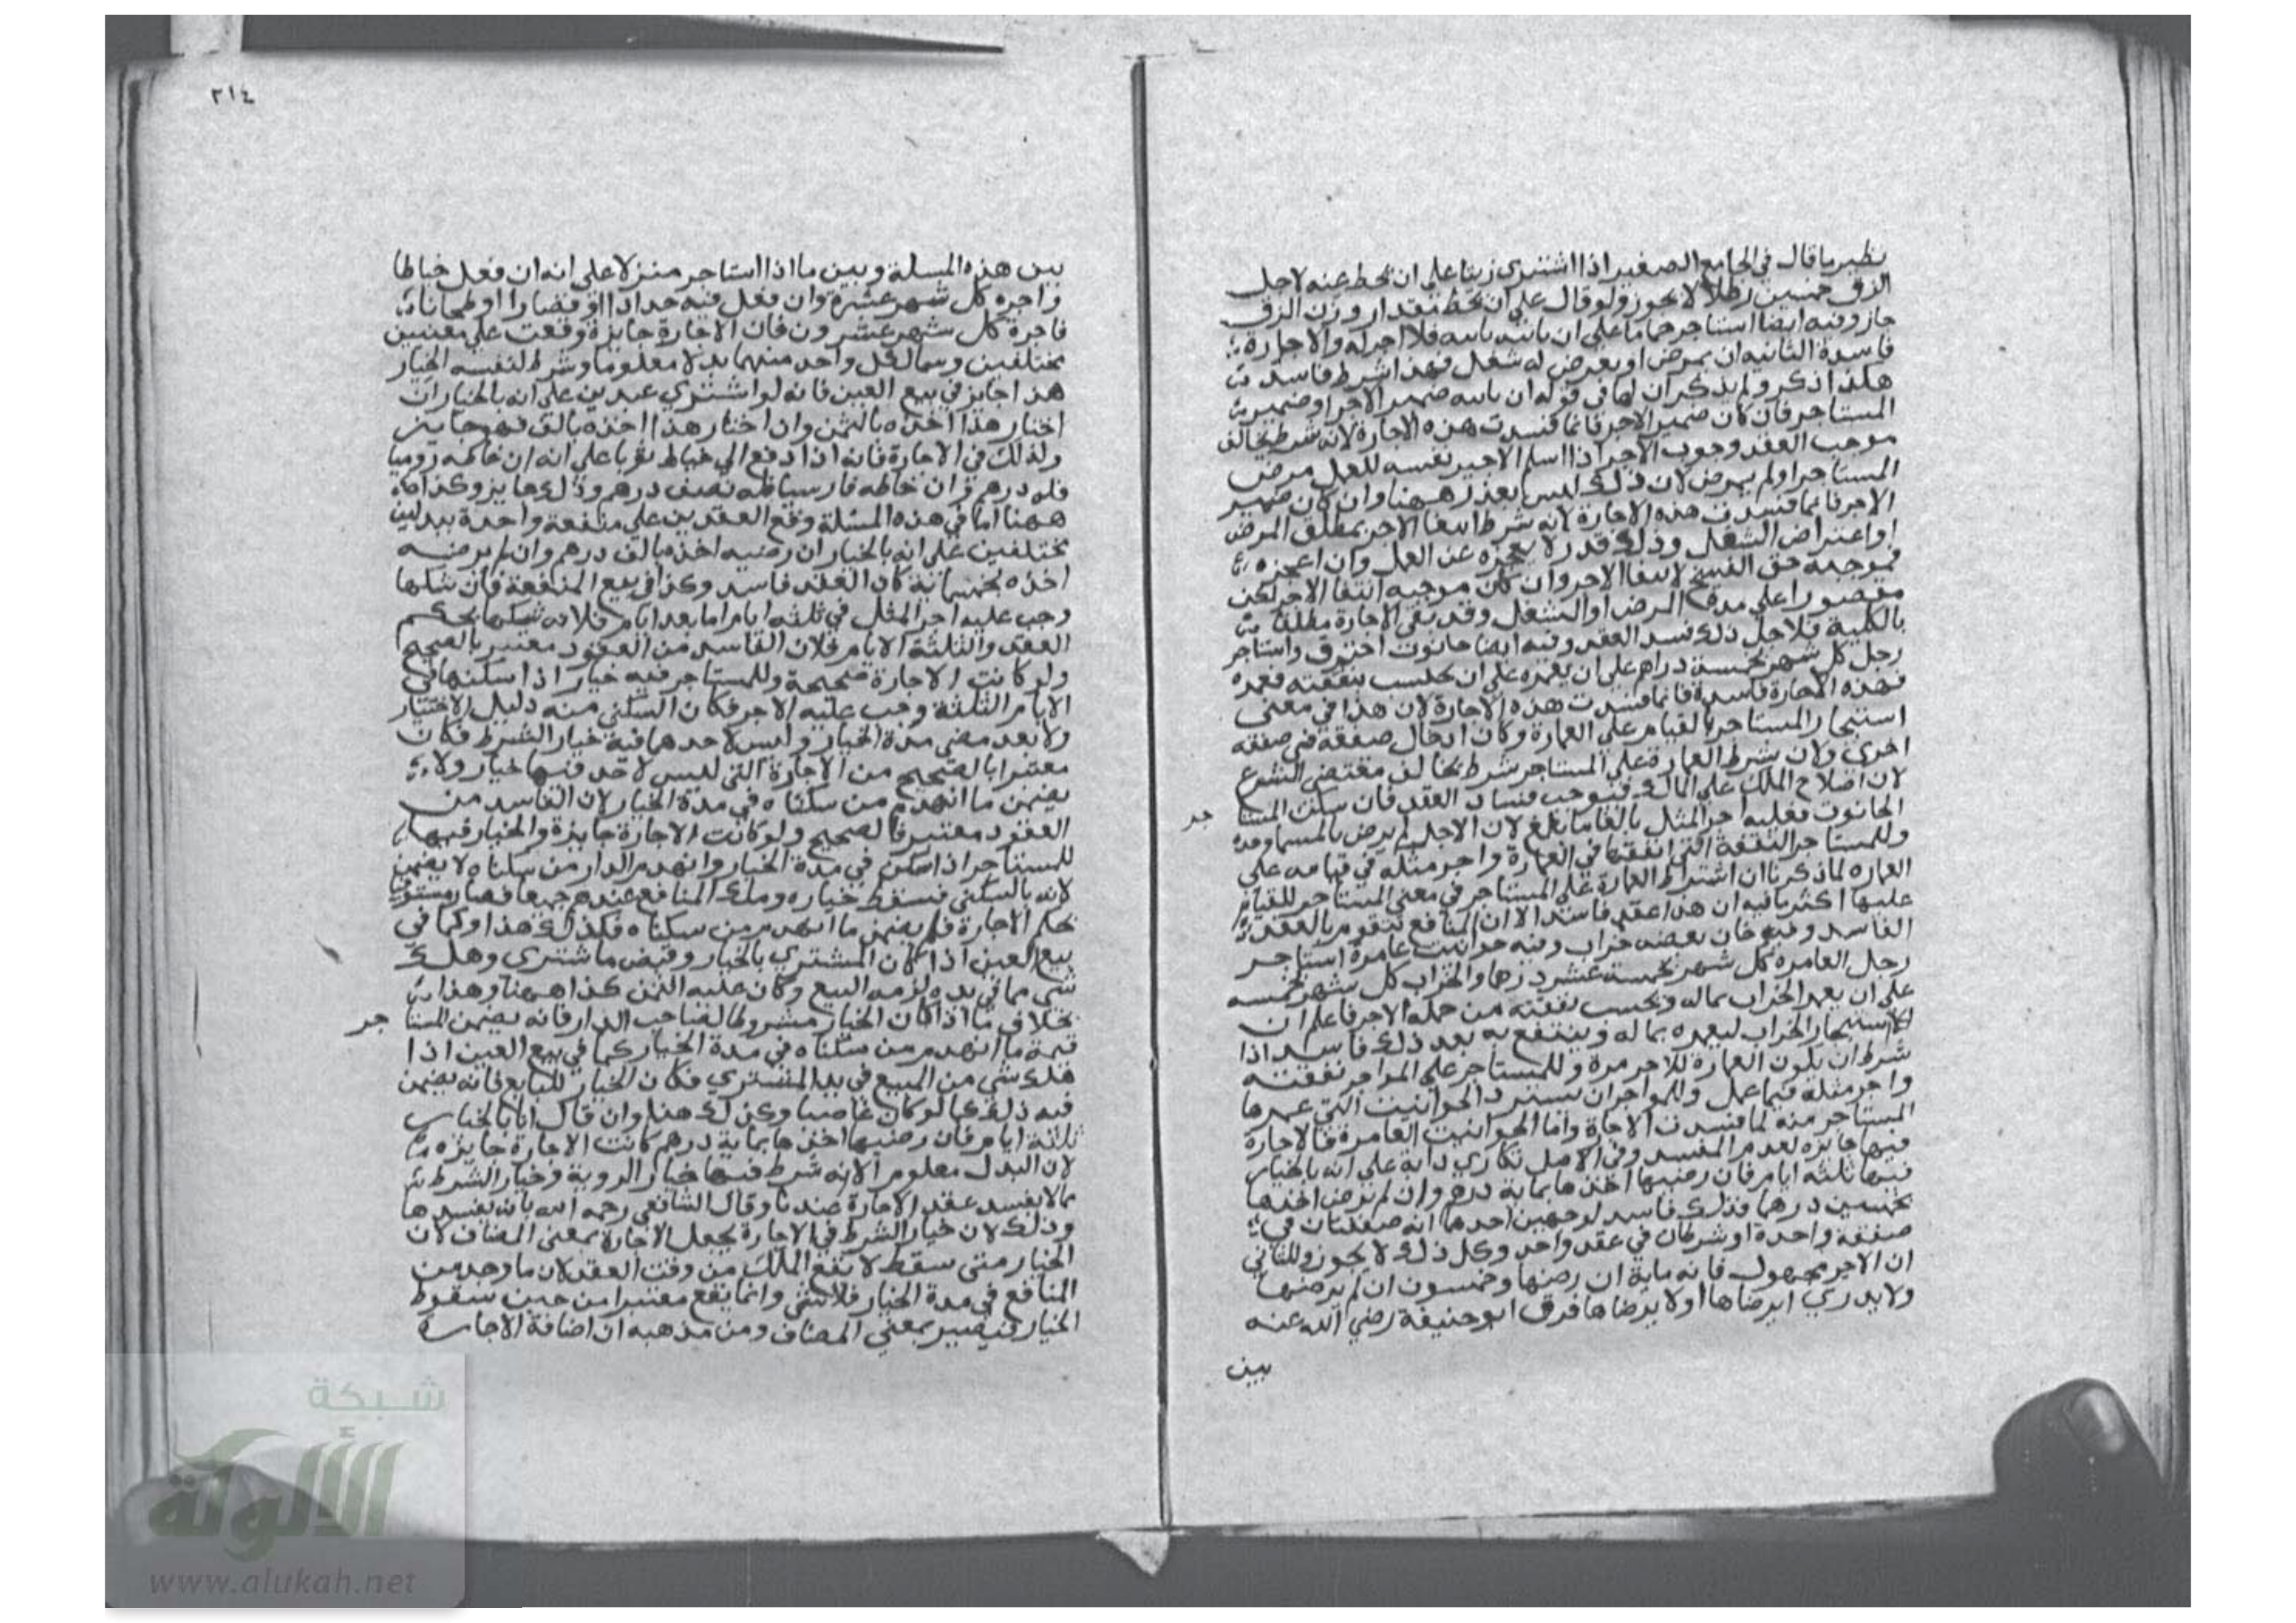 نظير ما قال في الجامع الصغير اذا اشترى زيتا على ان يحط عنه لاجل
الزق خمسين رطلا لا يجوز ولو قال على ان يحط مقدار وزن الزق
جاز وفيه ايضا استاجر حماما على ان نابته نايبه فلا اجر له والاجارة
فاسدة الثانية ان يمرض او يعرض له شغل فهذا شرط فاسد
هكذا ذكر ولم يذكر ان لها في قوله ان نابيه ضمير الاجر او ضمير
المستاجر فان كان ضمير الاجر فانما فسدت هذه الاجارة لانه شرط يخالف
موجب العقد وجوب الاجر اذا اسلم الاجير نفسه للعمل مرض
المستاجر او لم يمرض لان ذلك ليس بعذر ههنا وان كان ضمير
الاجر فانما فسدت هذه الاجارة لانه شرط انتفا الاجر بمطلق المرض
او اعتراض الشغل وذلك قدر لا يعجزه عن العمل وان اعجزه
فموجبه حق الفسخ لا انتفا الاجر وان كان موجبه انتفا الاجر لكن
مقصورا على مدة المرض او الشغل وقد نفى الاجارة مطلقا
بالكلية فلاجل ذلك فسد العقد وفيه ايضا حانوت احترق واستاجر
رجل كل شهر بخمسة دراهم على ان يعمره على ان يحسب بنفقته فعمره
فهذه الاجارة فاسدة فانما فسدت هذه الاجارة لان هذا في معنى
استيجار المستاجر بالقيام على العمارة وكان ادخال صفقة في صفقة
اخرى ولان شرط العمارة على المستاجر شرط يخالف مقتضى الشرع
لان اصلاح الملك على المالك فيوجب فساد العقد فان سكن المستا جر
الحانوت فعليه اجر المثل بالغا ما بلغ لان الاجر لم يرض بالمسمى وحده
وللمستاجر النفقة التي انفقها في العمارة واجر مثله في قيامه على
العماره لما ذكرنا ان اشتراط العمارة على المستاجر في معنى المستاجر للقيام
عليها اكثر ما فيه ان هذا عقد فاسد الا ان المنافع تتقوم بالعقد
الفاسد وفيه خان بعضه خراب وفيه حوانيت عامرة استاجر
رجل العامرة كل شهر بخمسة عشر درهما والخراب كل شهر بخمسه
على ان يعمر الخراب بماله ويحسب نفقته من جملة الاجر فاعلم ان
استيجار الخراب ليعمره بماله وينتفع به بعد ذلك فاسد اذا
شرط ان يكون العمارة للاجر مرة وللمستاجر على المواجر نفقته
واجر مثله فيما عمل وللمواجر ان يسترد الحوانيت التي عمرها
المستاجر منه لما فسدت الاجارة واما الحوانيت العامرة فالاجارة
فيها جايزة لعدم المفسد وفي الاصل تكارى دابة على انه بالخيار
فيها ثلثه ايام فان رضيها اخذها بماية درهم وان لم يرض اخذها
بخمسين درهما فذلك فاسد لوجهين احدهما انه صفقتان في
صفقة واحدة او شرطان في عقد واحد وكل ذلك لا يجوز والثاني
ان الاجر مجهول فانه ماية ان رضيها وخمسون ان لم يرضيها
ولا يدري ايرضاها او لا يرضاها فرق ابو حنيفة رضي الله عنه
بين
٢١٤
بين هذه المسلة وبين ما اذا استاجر منزلا على انه ان فعل خياطا
واجره كل شهر عشرة وان فعل فيه حدادا او قصارا او طحانا
فاجرة كل شهر عشرون فان الاجارة جايزة وقعت على معنيين
مختلفين وسما لكل واحد منهما بدلا معلوما وشرط لنفسه الخيار
هذا جايز في بيع العين فانه لو اشترى عبدين على انه بالخيار ان
اختار هذا اخذه بالثمن وان اختار هذا اخذه بالف فهو جايز
ولذلك في الاجارة فانه اذا دفع الى خياط ثوبا على انه ان خاطه روميا
فله درهم وان خاطه فارسيا فله نصف درهم وذلك جايز وكذا
ههنا اما في هذه المسئلة وقع العقدين على منفعة واحدة ببدلين
مختلفين على انه بالخيار ان رضيه اخذه بالف درهم وان لم يرضه
اخذه بخمسماية كان العقد فاسد وكذا في بيع المنفعة فان سكنها
وجب عليه اجر المثل في ثلثه ايام اما بعد ايام فلانه سكنها بحكم
العقد والثلثة الايام فلان الفاسد من العقود معتبر بالصحيح
ولو كانت الاجارة صحيحة وللمستاجر فيه خيار اذا سكنها في
الايام الثلثة وجب عليه الاجر فكان السكنى منه دليل الاختيار
ولا بعد مضى مدة الخيار وليس لاحدهما فيه خيار الشرط فكان
معتبرا بالصحيح من الاجارة التي ليس لاحد فيها خيار ولا
يضمن ما انهدم من سكناه في مدة الخيار لان الفاسد من
العقود معتبر بالصحيح ولو كانت الاجارة جايزة والخيار فيها
للمستاجر اذا سكن في مدة الخيار وانهدم الدار من سكناه لا يضمن
لانه بالسكنى فسقط خياره وملك المنافع عنده جميعا فصار مستوفيا
بحكم الاجارة فلم يضمن ما انهدم من سكناه فكذلك هذا وكما في
بيع العين اذا كان المشتري بالخيار وقبض ما اشترى وهلك
شي مما في يده لزمه البيع وكان عليه الثمن كذا ههنا وهذا
بخلاف ما اذا كان الخيار مشروطا لصاحب الدار فانه يضمن المستا جر
قيمة ما انهدم من سكناه في مدة الخيار كما في بيع العين اذا
هلك شي من المبيع في يد المشتري فكان الخيار للبايع فانه يضمن
فيه ذلك كما لو كان غاصبا وكذلك هنا وان قال انا بالخيار
ثلثة ايام فان رضيها اخذها بماية درهم كانت الاجارة جايزه
لان البدل معلوم الا انه شرط فيها خيار الروية وخيار الشرط
مما لا يفسد عقد الاجارة عندنا وقال الشافعي رحمه الله بانه يفسدها
وذلك لان خيار الشرط في الاجارة يجعل الاجارة بمعنى المضاف لان
الخيار متى سقط لا يقع الملك من وقت العقد لان ما وجد من
المنافع في مدة الخيار فلا تبقى وانما يقع معتبرا من حين سقوط
الخيار فيصير بمعنى المضاف ومن مذهبه ان اضافة الاجارة
شبكة
الألوكة
www.alukah.net